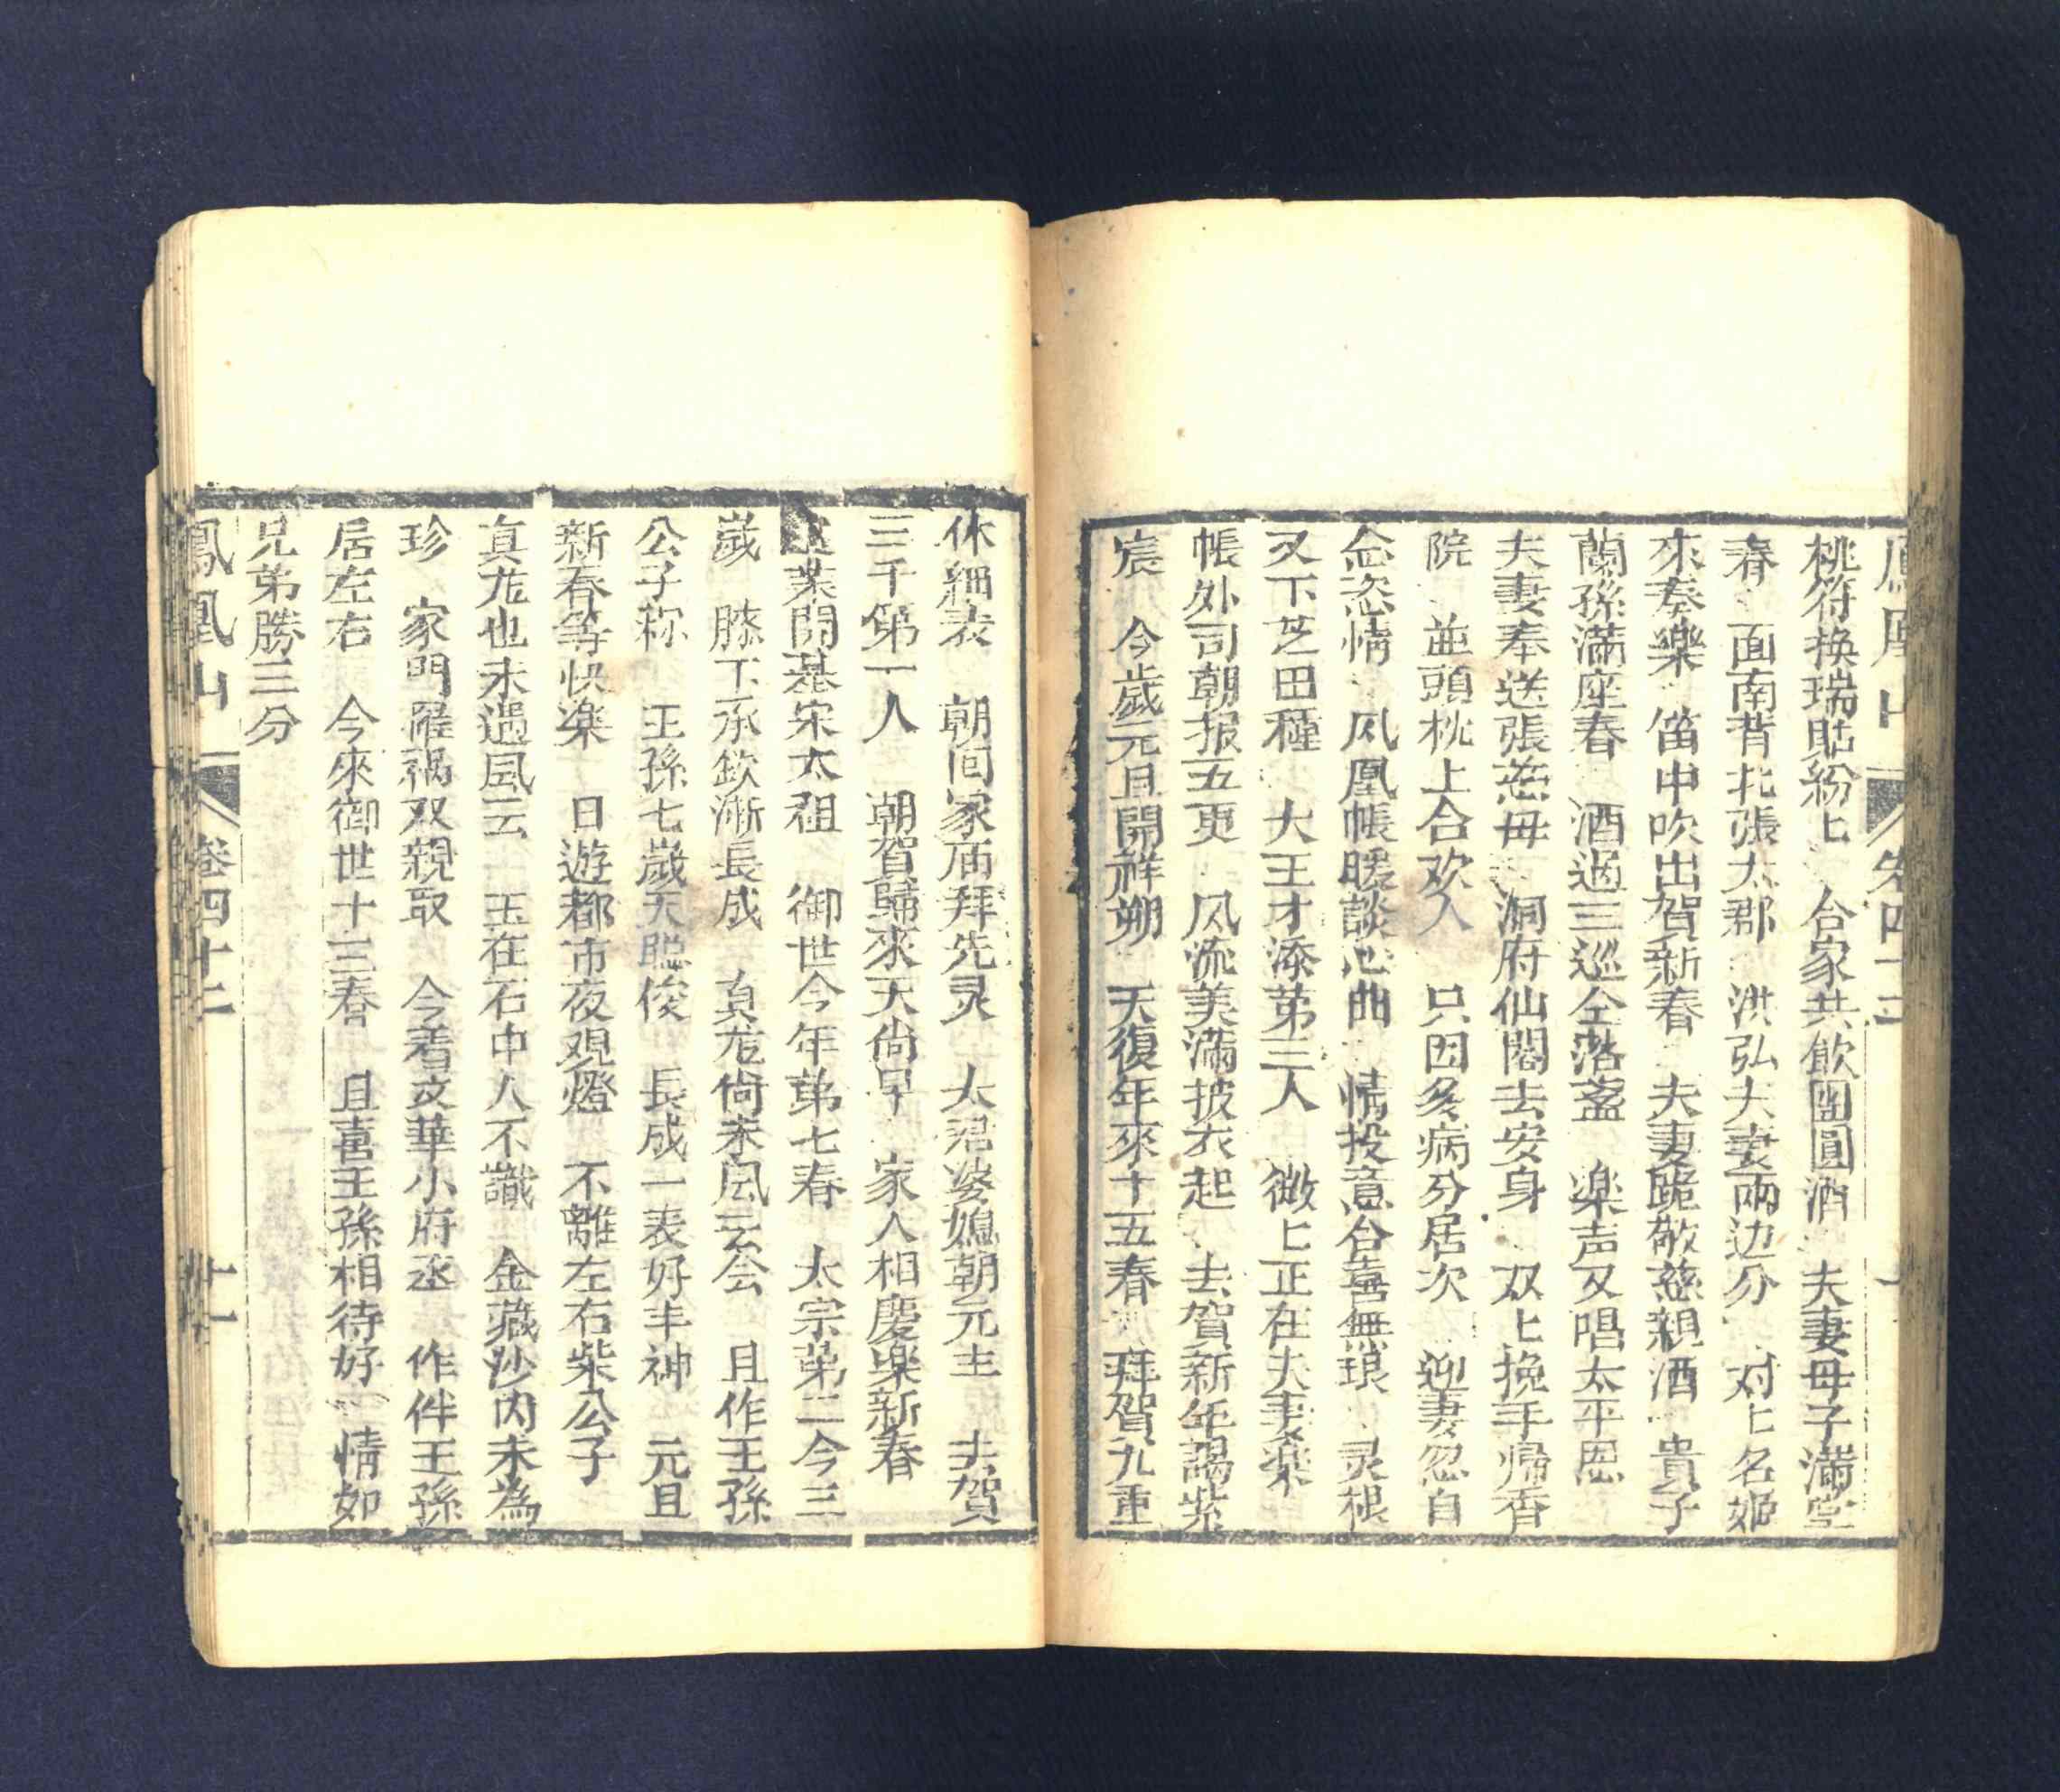 鳳凰山 卷四十二 十
桃符換瑞貼紛匕 合家共飲團圓酒 夫妻母子滿堂
春 面南背北張太郡 洪弘夫妻兩边分 对匕名姬
來奏樂 笛中吹出賀新春 夫妻跪敬慈親酒 貴子
蘭孫滿座春 酒過三巡全落盞 楽声又唱太平恩
夫妻奉送張慈母 洞府仙閣去安身 双匕挽手帰香
院 並頭枕上合欢人 只因多病分居次 迎妻忽自
念恣情 凤凰帳暖談心曲 情投意合喜無垠 灵根
又下芝田種 大王才添第三人 微匕正在夫妻楽
帳外司朝报五更 风流美滿披衣起 去賀新年謁紫
宸 今歲元旦開祥朔 天復年來十五春 拜賀九重
休細表 朝囘家庙拜先灵 太君婆媳朝元主 去賀
三千第一人 朝賀歸來天尚早 家人相慶楽新春
業開基宋太祖 御世今年第七春 太宗第二今三
歲 膝下承欽漸長成 真龙尚未风云会 且作王孫
公子称 王孫七歲天聪俊 長成一表好丰神 元旦
新春等快楽 日遊都市夜观燈 不離左右柴公子
真龙也未遇風云 玉在石中人不識 金藏沙内未為
珍 家門罹禍双親取 今着文華小府丞 作伴王孫
居左右 今來御世十三春 且喜王孫相待好 情如
兄弟勝三分
鳳凰山 卷四十二 十一